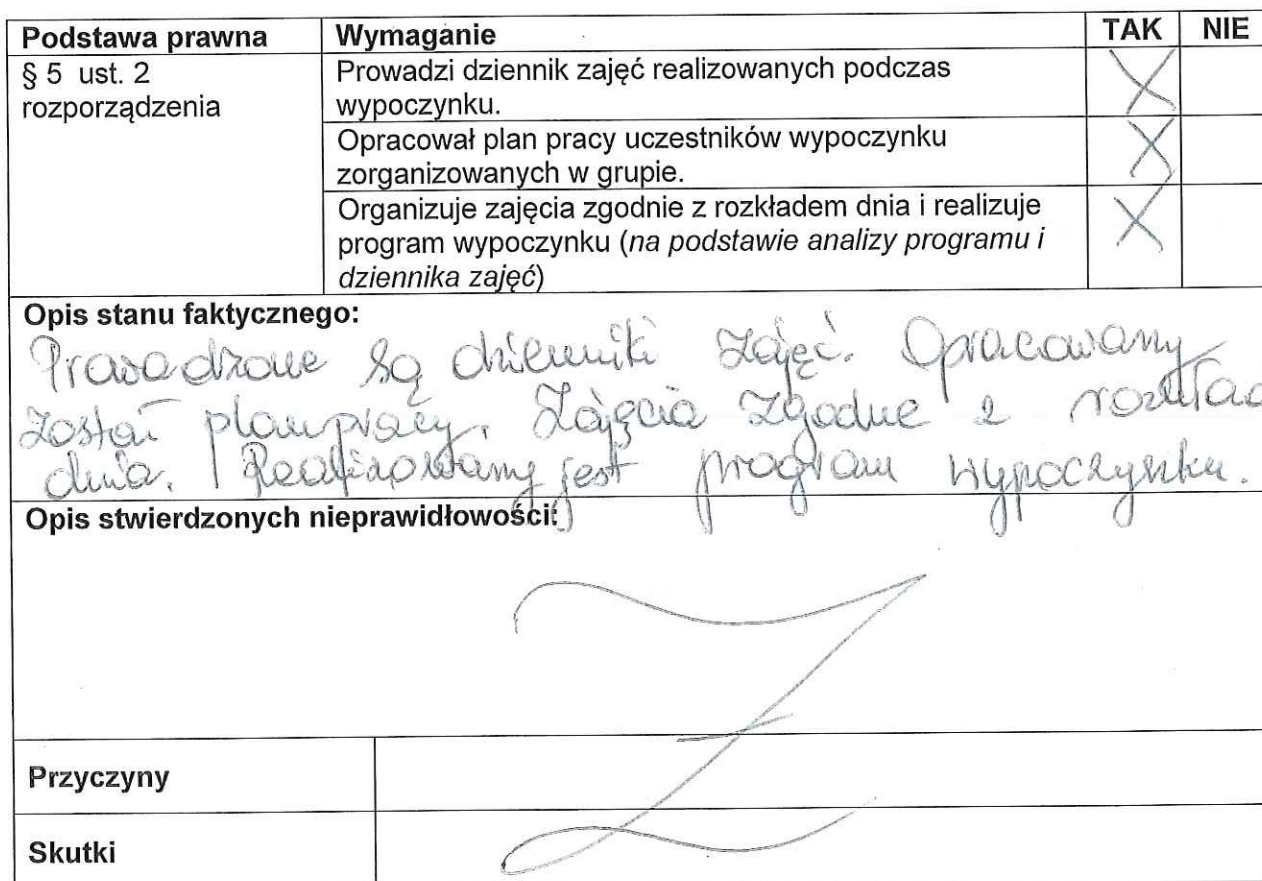 Podstawa prawna Wymaganie TAK NIE
§ 5 ust. 2 rozporządzenia
Prowadzi dziennik zajęć realizowanych podczas
wypoczynku. X
Opracował plan pracy uczestników wypoczynku
zorganizowanych w grupie. X
Organizuje zajęcia zgodnie z rozkładem dnia i realizuje
program wypoczynku (na podstawie analizy programu i
dziennika zajęć) X
Opis stanu faktycznego:
Prowadzone są dzienniki zajęć. Opracowany
został plan pracy. Zajęcia zgodne z rozkład
dnia. Realizowany jest program wypoczynku.
Opis stwierdzonych nieprawidłowości:
Przyczyny
Skutki